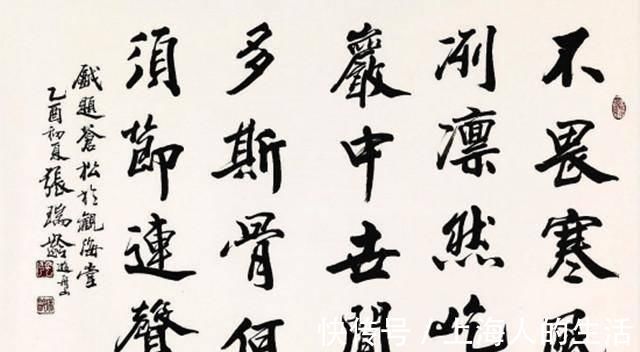 不畏寒風
冽凛然屹
嚴中世間
多斯骨何
須節連聲
戲題蒼松於觀海堂
乙酉初夏張瑞齡
快传号 / 上海人的生活